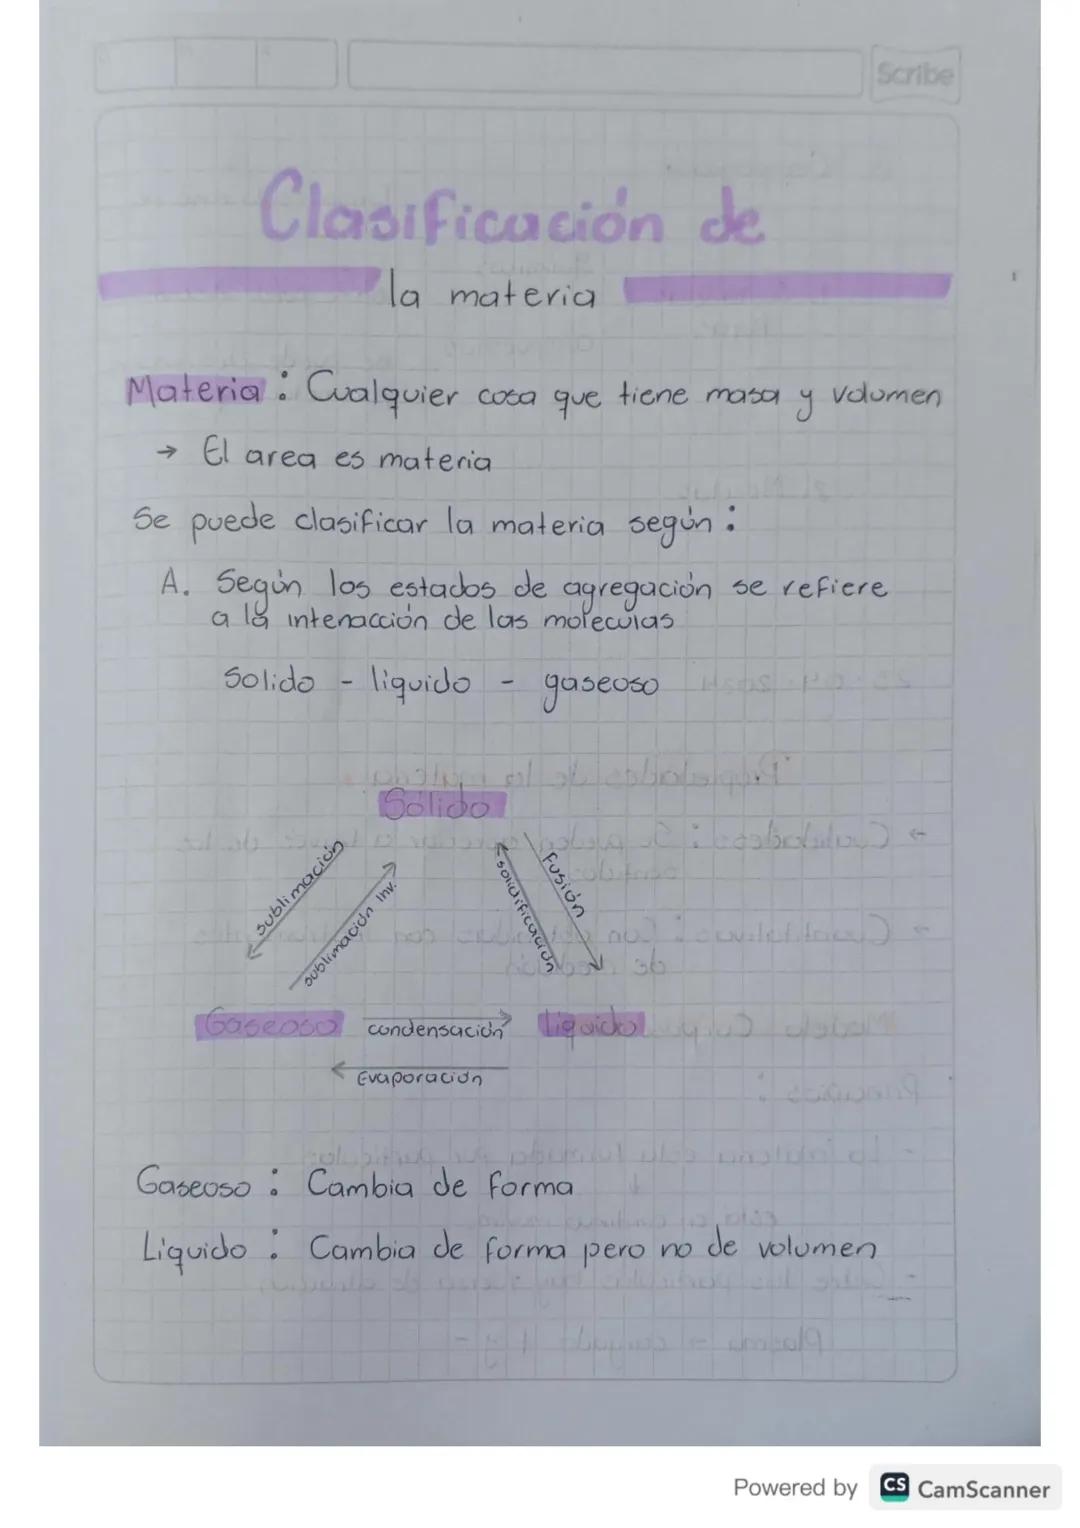 Scribe
Clasificación de
la materia
Materia : Cualquier cosa que tiene masa y volumen
→ El area es materia
Se puede clasificar la materia según :
A. Según los estados de agregación se refiere
a la interacción de las moleculas
Solido - liquido - gaseoso
Sólido
sublimación
sublimación Inv.
solidificación
Fusión
Gaseoso
condensación
liquido
Evaporación
Gaseoso : Cambia de forma
Liquido : Cambia de forma pero no de volumen
Powered by CS CamScanner